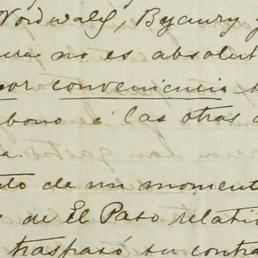 Nordwald, Byaury y
no es absolut
por conveniencia
abono á las otras
a.
to de un momento
de El Paso relati
traspasó su contra